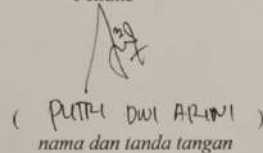 ( PUTRI DWI ARINI )
nama dan tanda tangan